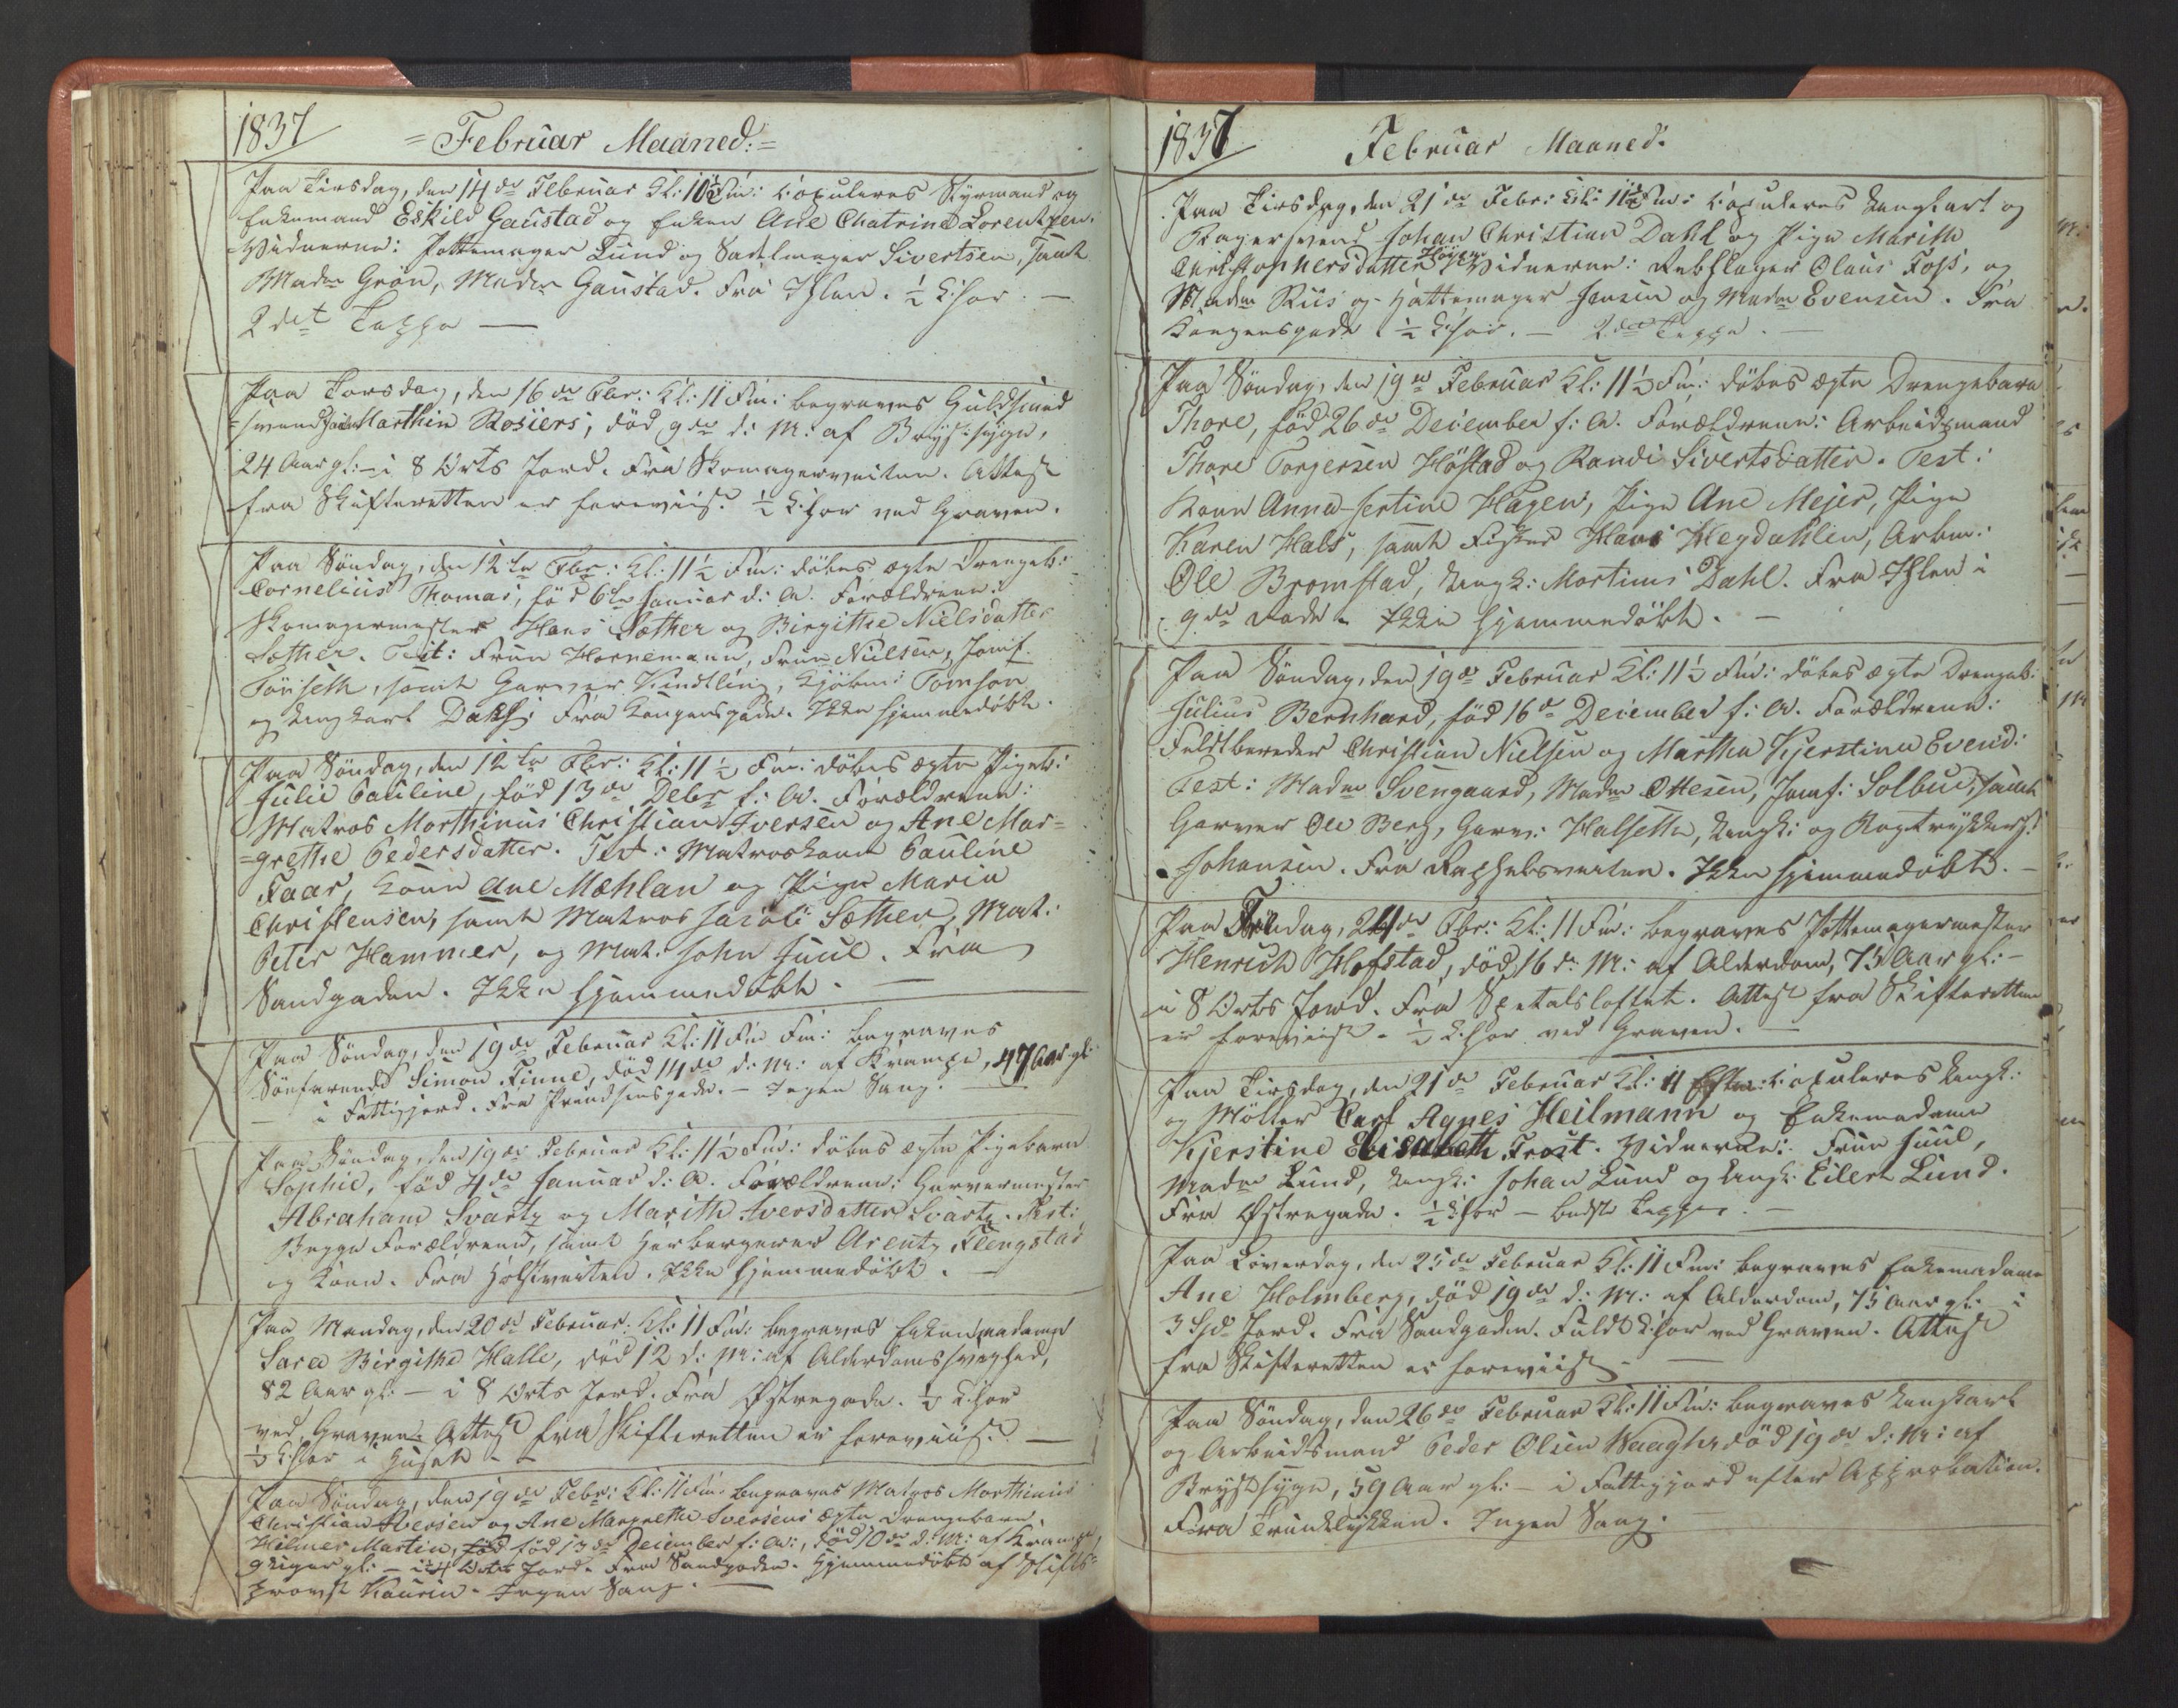 1837
=Februar Maaned:=
Paa Tirsdag, den 14de Februar Kl: 10½ Fm: copuleres Styrmand og
Enkemand Eskild Gaustad og Enken Ane Chatrine Lorentzen.
Vidnerne: Pottemager Lund og Sadelmager Sivertsen, samt
Madm Grøn, Madm Gaustad. Fra Ihlen. ½ Chor. —
2det Teppe —
Paa Torsdag, den 16de Fbr: Kl: 11 Fm: begraves Guldsmed
=svend Marthin Rosiers, død 9de d: M: af Brystsyge,
24 Aar gl: – i 8 Orts Jord. Fra Skomagerveiten. Attest
fra Skifteretten er foreviist. ½ Chor ved Graven.
Paa Søndag, den 12te Fbr: Kl: 11½ Fm: døbes ægte Drengeb:
Cornelius Thomas, fød 6te Januar d: A. Forældrene:
Skomagermester Hans Sæther og Birgithe Nielsdatter
Sæther. Test: Frue Hornemann, Frue Nielsen, Jomf.
Tønseth, samt Garver Kindtling, Kjøbm: Tomson
og Dahl. Fra Kongensgade. Ikke hjemmedøbt.
Paa Søndag, den 12te Fbr: Kl: 11½ Fm: døbes ægte Pigeb:
Julie Pauline, fød 13de Debr f: A. Forældrene:
Matros Morthinus Christian Iversen og Ane Mar=
=grethe Pedersdatter. Test: Matroskone Pauline
Faar, Kone Ane Mæhlan og Pige Maria
Christensen, samt Matros Jacob Sæther, Mat:
Peter Hammer, og Mat: John Juul. Fra
Sandgaden. Ikke hjemmedøbt. —
Paa Søndag, den 19de Februar Kl: 11 Fm Fm: begraves
Sønfarende Simon Finne, død 14de d: M: af Krampe, 47 Aar gl:
— i Fattigjord. Fra Prindsensgade. – Ingen Sang.
Paa Søndag, den 19de Februar Kl: 11½ Fm: døbes ægte Pigebarn
Sophie, fød 4de Januar d: A. Forældrene: Garvermester
Abraham Svartz og Marith Iversdatter Svartz. Test:
Begge Forældrene, samt Herbergerer Arentz Flengstad
og Kone. Fra Holstveiten. Ikke hjemmedøbt. —
Paa Mandag, den 20de Februar: Kl: 11 Fm: begraves Enkemadame
Sara Birgitha Halle, død 12 d: M: af Alderdomssvaghed,
82 Aar gl: — i 8 Orts Jord. Fra Østregade. ½ Chor
ved Graven. Attest fra Skifteretten er foreviist. —
½ Chor i Huset –
Paa Søndag, den 19de Febr: Kl: 11 Fm: begraves Matros Morthinus
Christian Iversen og Ane Margrethe Iversens ægte Drengebarn
Hilmer Martin, fød 13de December f: A:, død 10de d: M: af Krampe,
9 Uger gl: – i 4 Orts Jord. Fra Sandgaden. Hjemmedøbt af Stifts=
provst Kaurin. Ingen Sang. —
1837
Februar Maaned.
Paa Tirsdag, den 21de Febr: Kl: 11½ Fm: copuleres Ungkarl og
Bagersvend Johan Christian Dahl og Pige Marith
Christophersdatter Høyem. Vidnerne: Rebslager Olaus Foss, og
Madm Riis og Hattemager Jensen og Madm Evensen. Fra
Kongensgade ½ Chor. — 2det Teppe. —
Paa Søndag, den 19de Februar Kl: 11½ Fm: døbes ægte Drengebarn
Thore, fød 26de December f: A. Forældrene: Arbeidsmand
Thore Torgersen Høstad og Randi Sivertsdatter. Test:
Kone Anna Sertine Hagen, Pige Ane Mejer, Pige
Karen Hals, samt Fisker Hans Heydahlen, Arbm:
Ole Bromstad, Ungk: Mortinus Dahl. Fra Ihlen i
9de Rode. Ikke hjemmedøbt. —
Paa Søndag, den 19de Februar Kl: 11½ Fm: døbes ægte Drengeb:
Julius Bernhard, fød 16de December f: A. Forældrene:
Feldtbereder Christian Nielsen og Martha Kjerstina Evend:
Test: Madm Svengaard, Madm Ottesen, Jomf: Solbue, samt
Garver Ole Berg, Garv: Halseth, Ungk: og Bogtrykkers:
Johansen. Fra Repslerveiten. Ikke hjemmedøbt. —
Paa Fredag, 24de Fbr: Kl: 11 Fm: begraves Pottemagermester
Henrich Hofstad, død 16 d: M: af Alderdom, 75 Aar gl: –
i 8 Orts Jord. Fra Spetalsloftet. Attest fra Skifteretten
er foreviist. – ½ Chor ved Graven. —
Paa Tirsdag, den 21de Februar Kl: 4 Efterm: copuleres Ungk:
og Møller Carl Agnes Heilmann og Enkemadame
Kjerstine Elisabeth Trost. Vidnerne: Frue Juul,
Madm Lund, Ungk: Johan Lund og Ungk: Eilert Lund.
Fra Østregade. ½ Chor — bedste Teppe. —
Paa Løverdag, den 25de Februar Kl: 11 Fm: begraves Enkemadame
Ane Holmberg, død 19de d: M: af Alderdom, 75 Aar gl: i
3 Spd Jord. Fra Sandgaden. Fuldt Chor ved Graven. Attest
fra Skifteretten er foreviist. —
Paa Søndag, den 26de Februar Kl: 11 Fm: begraves Ungkarl
og Arbeidsmand Peder Olsen Waagh, død 19de d: M: af
Brystsyge, 59 Aar gl: – i Fattigjord efter Approbation.
Fra Trundslykken. Ingen Sang. —